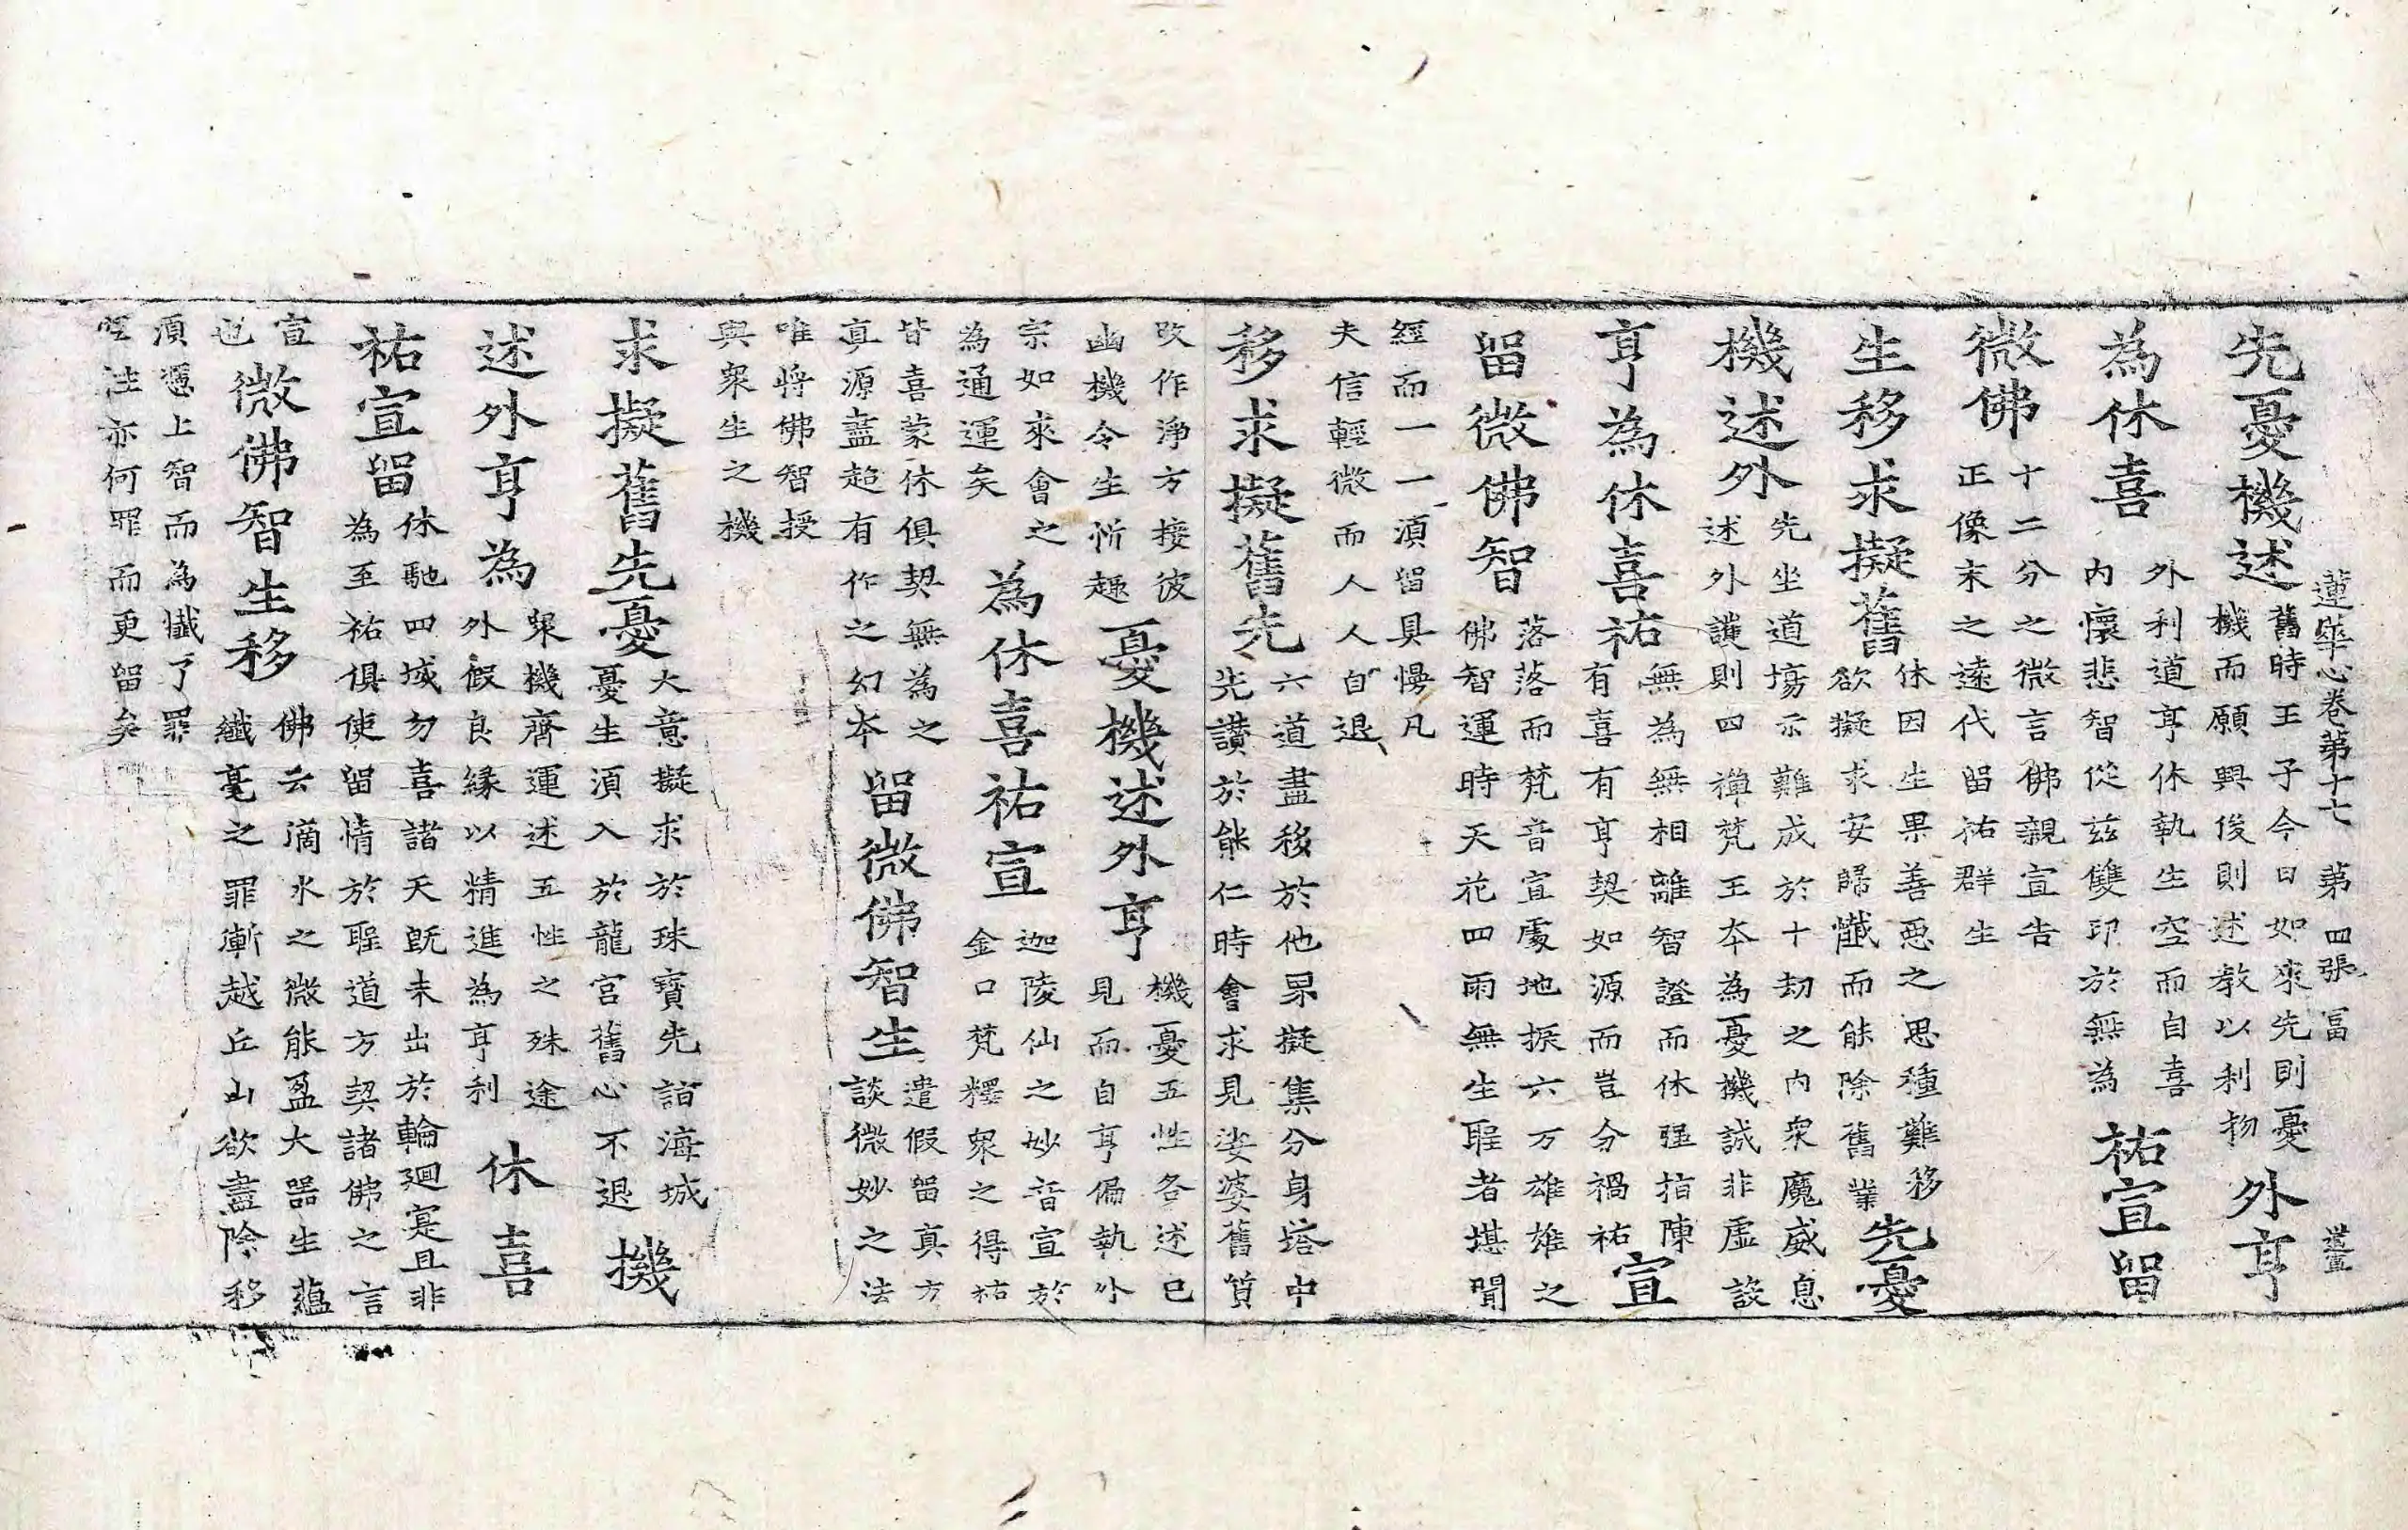 蓮華心卷第十七 第四張 冨
先憂機述舊時王子今日如來先則憂機而願興後則述教以利物外亨
為休喜外利道亨休執生空而自喜內懷悲智從茲雙印於無為祐宣留
微佛十二分之微言佛親宣告正像末之遠代留祐群生
生移求擬舊休因生果善惡之思種難移欲擬求安歸懺而能除舊業先憂
機述外先坐道場示難成於十劫之內衆魔威息述外護則四禪梵王本為憂機誠非虛設
亨為休喜祐無為無相離智證而休强指陳有喜有亨契如源而豈分禍祐宣
留微佛智落落而梵音宣處地振六万雄雄之佛智運時天花四雨無生聖者堪聞
經而一一湏留具慢凡
夫信輕微而人人自退
移求擬舊先六道盡移於他界擬集分身塔中先讃於能仁時會求見娑婆舊質
改作淨方接彼
幽機令生忻趣憂機述外亨機憂五性各述已見而自亨偏執外
宗如來會之
為通運矣為休喜祐宣迦陵仙之妙音宣於金口梵釋衆之得祐
皆喜蒙休俱契無為之
真源盖超有作之幻本留微佛智生遣假留真方談微妙之法
唯將佛智授
與衆生之機
求擬舊先憂大意擬求於珠寶先詣海城憂生湏入於龍宮舊心不退機
述外亨為衆機齊運述五性之殊途外假良緣以精進為亨利休喜
祐宣留休馳四域勿喜諸天旣未出於輪廻寔且非為至祐俱使留情於聖道方契諸佛之言
宣
也微佛智生移佛云滴水之微能盈大器生蘊纖毫之罪漸越丘山欲盡除移
湏憑上智而為懺了罪
性亦何罪而更留矣